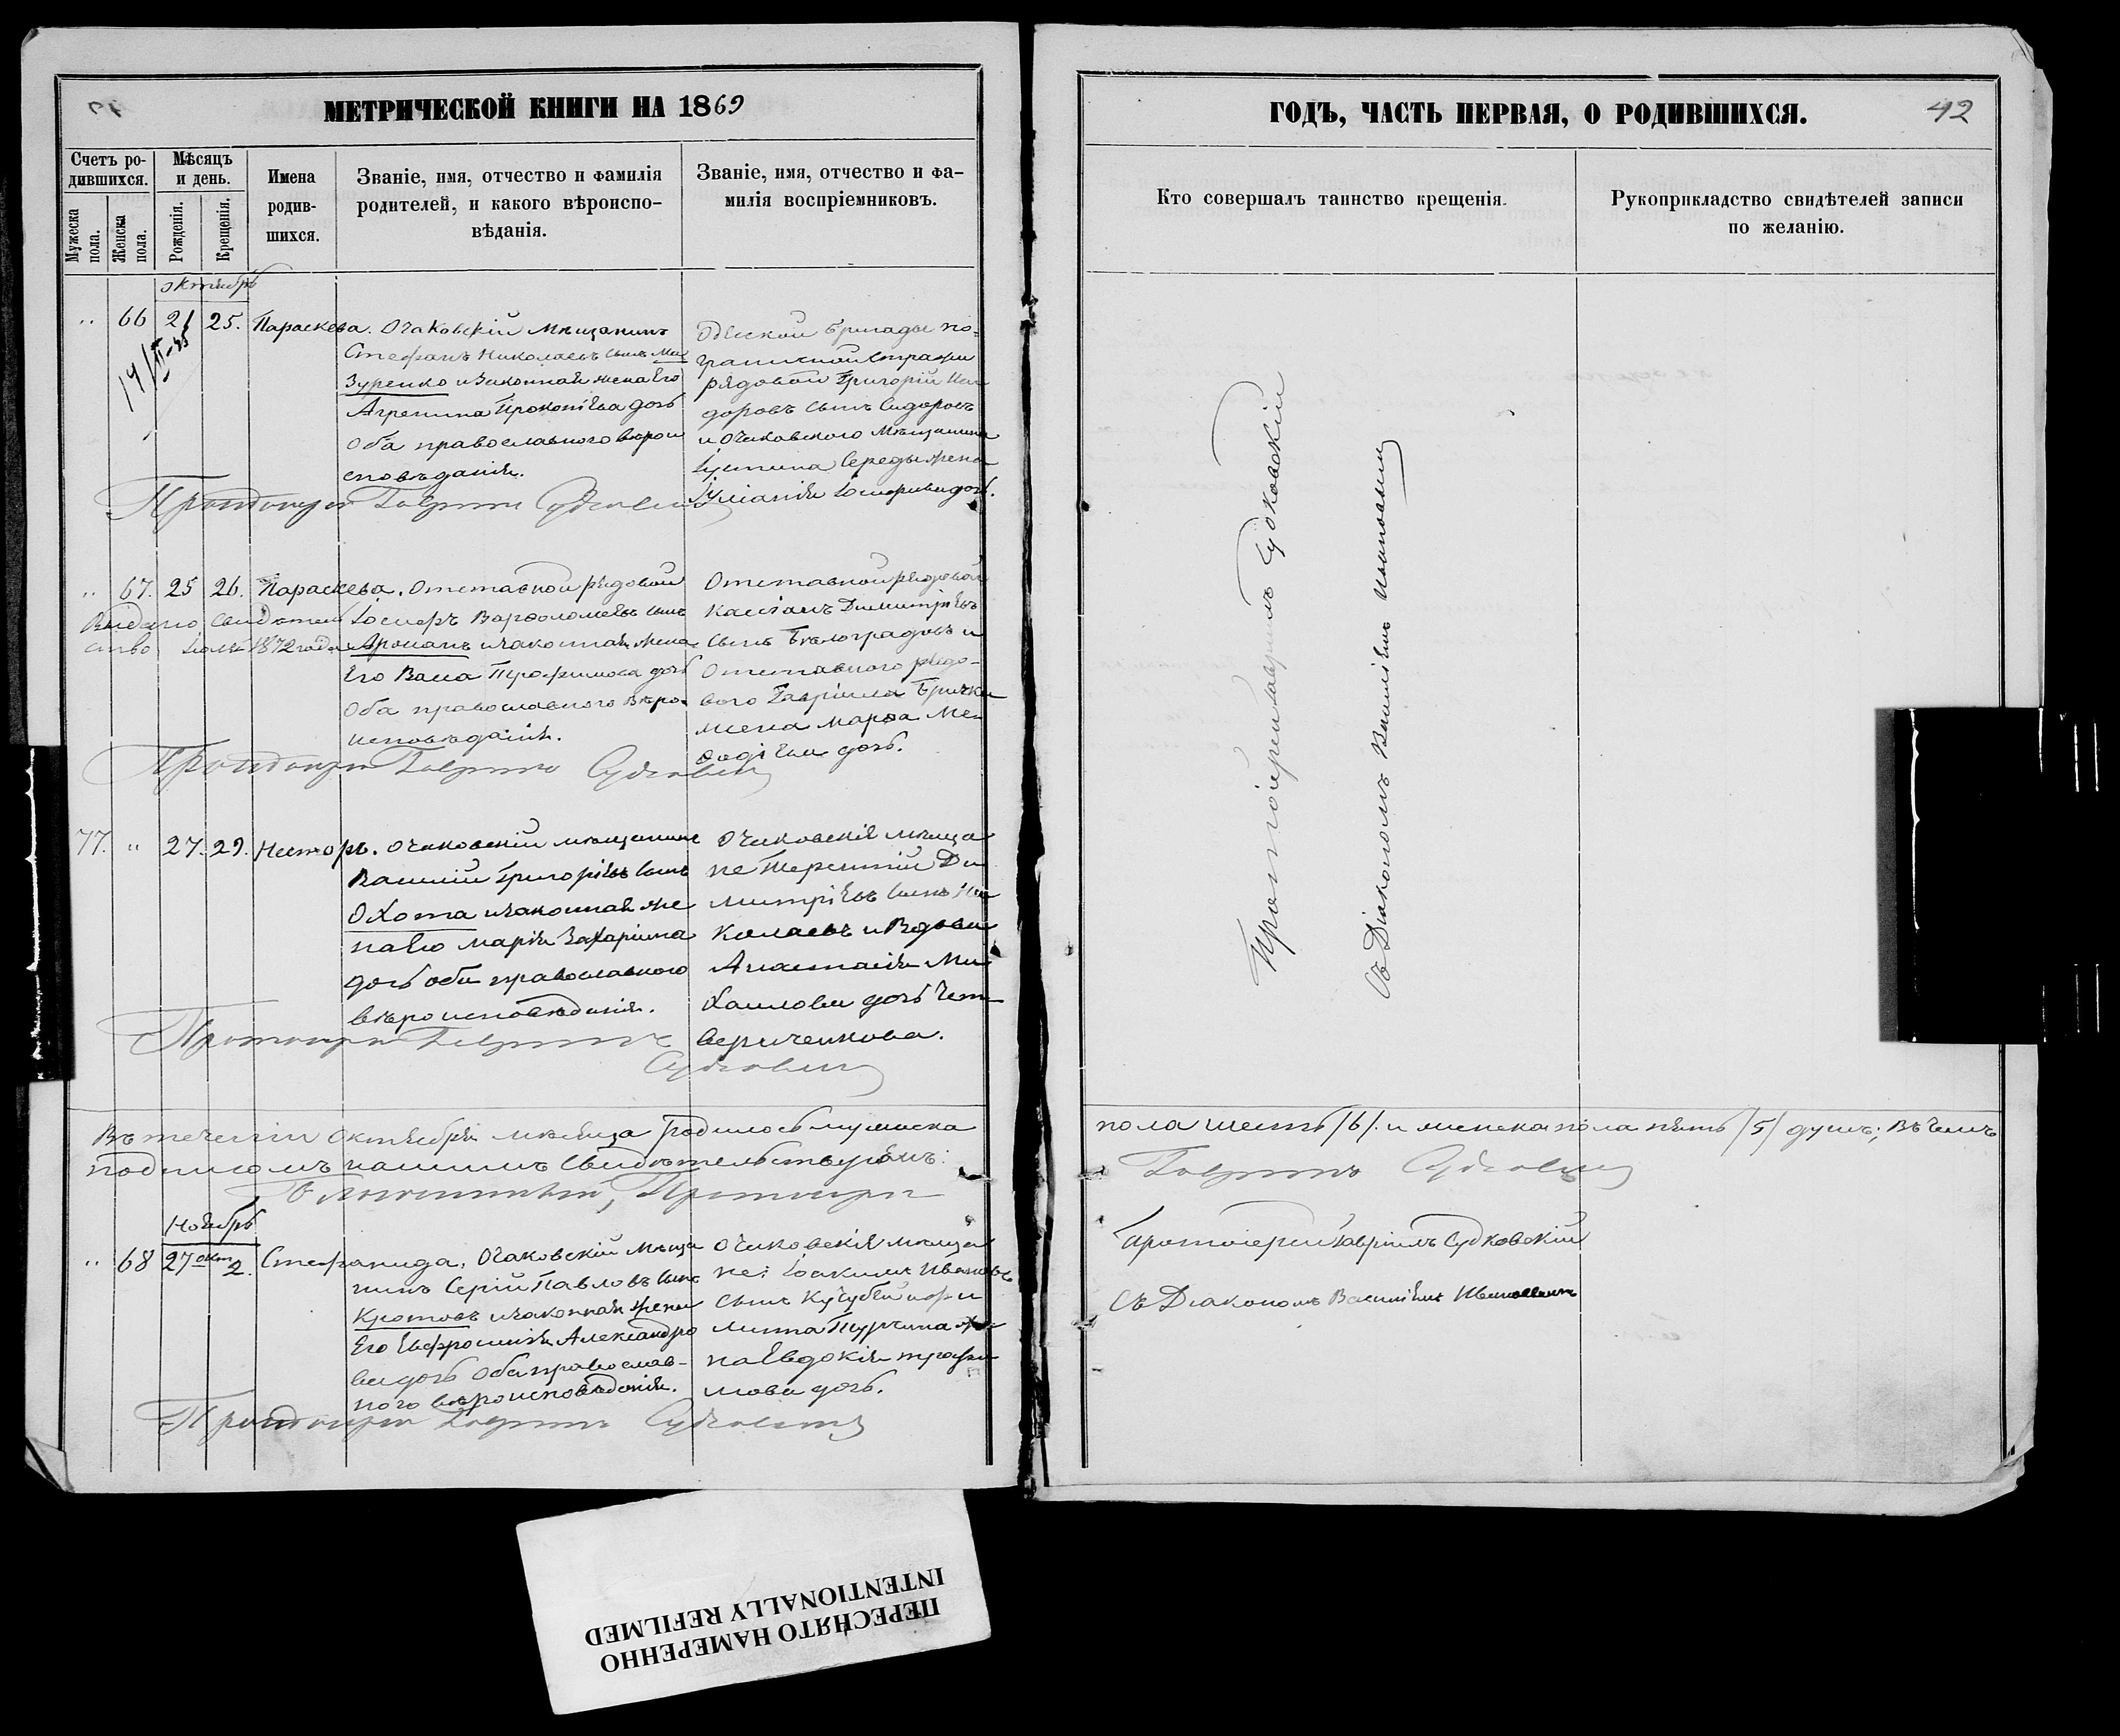 МЕТРИЧЕСКОЙ КНИГИ НА 1869
Счетъ ро-
дившихся.
Мужеска
пола.
Женска
пола.
Мѣсяцъ
и день.
Рожденія.
Крещенія.
Имена
родив-
шихся.
Званіе, имя, отчество и фамилія
родителей, и какого вѣроиспо-
вѣданія.
Званіе, имя, отчество и фа-
милія воспріемниковъ.
октябрь
66 21 25. Параскева.
Очаковскій мѣщанинъ
Стефанъ Николаевъ сынъ Ма
зуренко и законная жена Его
Агрепина Прокопіева дочь
оба православнаго вѣрои
сповѣданія.
Одеской бригады по-
граничной стражи
рядовой Григорій
доровъ сынъ Сидоровъ
и Очаковского мѣщанина
Іустина Середы жена
Іуліанія дочь.
Протоіерей Гавріилъ Судковскій
67. 25 26. Параскева.
Выдано свидетель
ство 1872 года
Отставной рядовой
Іосифъ Варѳоломеевъ сынъ
и законная жена
Его Васса Трофимова дочь
оба православного вѣро-
исповѣданія.
Отставной рядовой
Кассіанъ Димитріевъ
сынъ Бѣлоградовъ и
Отставного рядо-
вого Гавріила
жена Марѳа Ме-
ѳодіева дочь.
Протоіерей Гавріилъ Судковскій
77. " 27. 29. Несторъ.
Очаковскій мѣщанинъ
Василій Григоріевъ сынъ
Охота и законная же
на Его Марія Захаріина
дочь оба православного
вѣроисповѣданія.
Очаковскія мѣща
не Терентій Ди
митріевъ сынъ Ни
колаевъ и Вдова
Анастасія Ми
хаилова дочь Чет
вериченкова.
Протоіерей Гавріилъ
Судковскій
Въ теченіи октября мѣсяца родилось мужеска
подписомъ нашимъ свидѣтельствуемъ:
Благочинный, Протоіерей
Ноябрь
68 27 окт 2. Стефанида,
Очаковскій мѣща
нинъ Сергій Павловъ сынъ
Кротовъ и законная жена
Его Евфросинія Александро
ва дочь оба православ-
ного вѣроисповѣданія.
Очаковскія мѣща
не: Іоакимъ Ивановъ
сынъ Кучубей и
жe
на Евдокія Трофи
мова дочь.
Протоіерей Гавріилъ Судковскій
ГОДЪ, ЧАСТЬ ПЕРВАЯ, О РОДИВШИХСЯ.
42
Кто совершалъ таинство крещенія.
Рукоприкладство свидѣтелей записи
по желанію.
Протоіерей Гавріилъ Судковскій
Съ Діакономъ Василіемъ Ивановымъ
пола шесть /6/. и женска пола пять /5/ душъ; въ чемъ
Гавріилъ Судковскій
Протоіерей Гавріилъ Судковскій
Съ Діакономъ Василіемъ Ивановымъ
ПЕРЕСНЯТО НАМЕРЕННО
INTENTIONALLY REFILMED